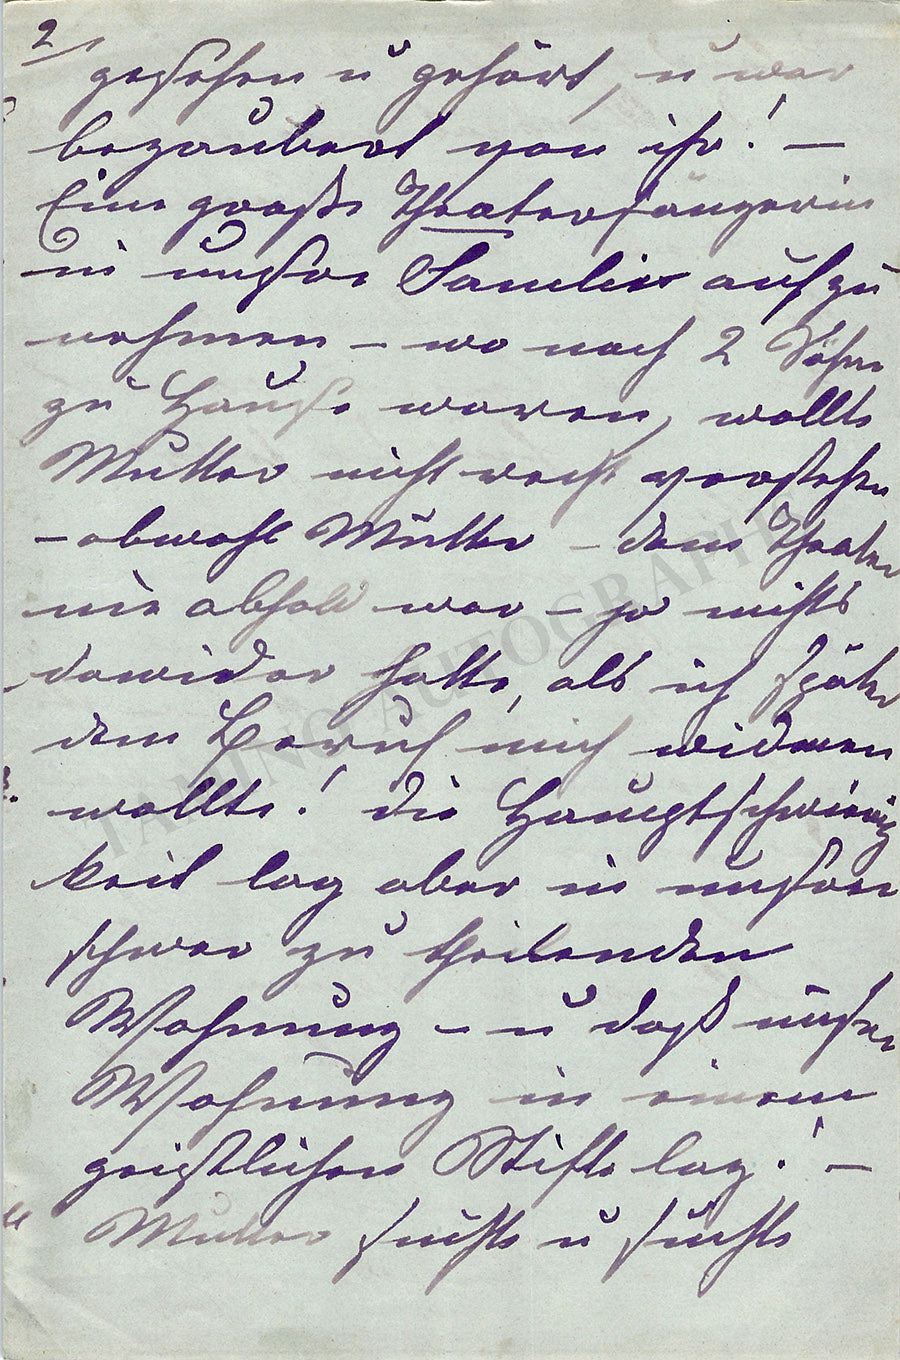 2
gesehen u gehört, u war
bezaubert von ihr! –
Eine große Theatersängerin
in unsre Familie aufzu
nehmen – wo noch 2 Söhne
zu Hause waren, wollte
Mutter nicht recht verstehen
– obwohl Mutter – dem Theater
nie abhold war – ja nichts
dawider hatte, als ich später
dem Beruf mich widmen
wollte! Die Hauptschwierig
keit lag aber in unserer
schwer zu theilenden
Wohnung – u daß unsere
Wohnung in einem
geistlichen Stifte lag! –
Mutter suchte u suchte
TAMINO AUTOGRAPHS